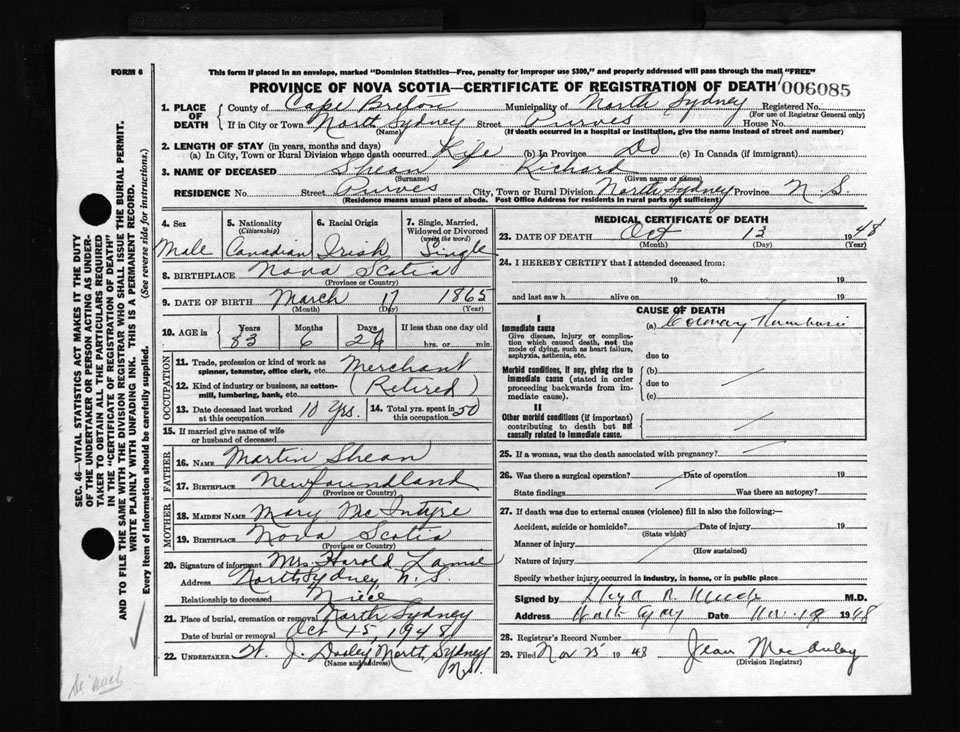 FORM 6
This form if placed in an envelope, marked "Dominion Statistics—Free, penalty for improper use $300," and properly addressed will pass through the mail "FREE"
PROVINCE OF NOVA SCOTIA—CERTIFICATE OF REGISTRATION OF DEATH 006085
1. PLACE OF DEATH County of Cape Breton Municipality of North Sydney Registered No.
(For use of Registrar General only)
If in City or Town North Sydney Street Purves House No.
(Name) (If death occurred in a hospital or institution, give the name instead of street and number)
2. LENGTH OF STAY (in years, months and days)
(a) In City, Town or Rural Division where death occurred Life (b) In Province Do (c) In Canada (if immigrant)
3. NAME OF DECEASED Shean Richard
(Surname) (Given name or names)
RESIDENCE No. Street Purves City, Town or Rural Division North Sydney Province N.S.
(Residence means usual place of abode. Post Office Address for residents in rural parts not sufficient)
4. Sex Male
5. Nationality (Citizenship) Canadian
6. Racial Origin Irish
7. Single, Married, Widowed or Divorced (write the word) Single
8. BIRTHPLACE Nova Scotia
(Province or Country)
9. DATE OF BIRTH March 17 1865
(Month) (Day) (Year)
10. AGE in Years Months Days If less than one day old
83 6 26 hrs. or min.
OCCUPATION
11. Trade, profession or kind of work as spinner, teamster, office clerk, etc. Merchant
12. Kind of industry or business, as cotton-mill, lumbering, bank, etc. (Retired)
13. Date deceased last worked at this occupation 10 yrs. 14. Total yrs. spent in this occupation 50
15. If married give name of wife or husband of deceased
FATHER
16. NAME Martin Shean
17. BIRTHPLACE Newfoundland
(Province or Country)
MOTHER
18. MAIDEN NAME Mary McIntyre
19. BIRTHPLACE Nova Scotia
(Province or Country)
20. Signature of informant Mrs. Harold
Address North Sydney, N.S.
Relationship to deceased Niece
21. Place of burial, cremation or removal North Sydney
Date of burial or removal Oct 15, 1948
22. UNDERTAKER W. J. Dooley North Sydney N.S.
(Name and address)
MEDICAL CERTIFICATE OF DEATH
23. DATE OF DEATH Oct 13 1948
(Month) (Day) (Year)
24. I HEREBY CERTIFY that I attended deceased from:
19 to 19
and last saw h alive on 19
CAUSE OF DEATH
I
Immediate cause (a) Coronary Thrombosis
Give disease, injury or complication which caused death, not the mode of dying, such as heart failure, asphyxia, asthenia, etc. due to
Morbid conditions, if any, giving rise to immediate cause (stated in order proceeding backwards from immediate cause). (b) due to (c)
II
Other morbid conditions (if important) contributing to death but not causally related to immediate cause.
25. If a woman, was the death associated with pregnancy?
26. Was there a surgical operation? Date of operation 19
State findings Was there an autopsy?
27. If death was due to external causes (violence) fill in also the following:—
Accident, suicide or homicide? Date of injury 19
(State which)
Manner of injury
(How sustained)
Nature of injury
Specify whether injury occurred in industry, in home, or in public place
Signed by M.D.
Address Date 1948
28. Registrar's Record Number
29. Filed Nov 25 1948 Jean MacAulay
(Division Registrar)
SEC. 46—VITAL STATISTICS ACT MAKES IT THE DUTY
OF THE UNDERTAKER OR PERSON ACTING AS UNDER-
TAKER TO OBTAIN ALL THE PARTICULARS REQUIRED
IN THE "CERTIFICATE OF REGISTRATION OF DEATH"
AND TO FILE THE SAME WITH THE DIVISION REGISTRAR WHO SHALL ISSUE THE BURIAL PERMIT.
WRITE PLAINLY WITH UNFADING INK. THIS IS A PERMANENT RECORD.
Every item of Information should be carefully supplied. (See reverse side for instructions.)